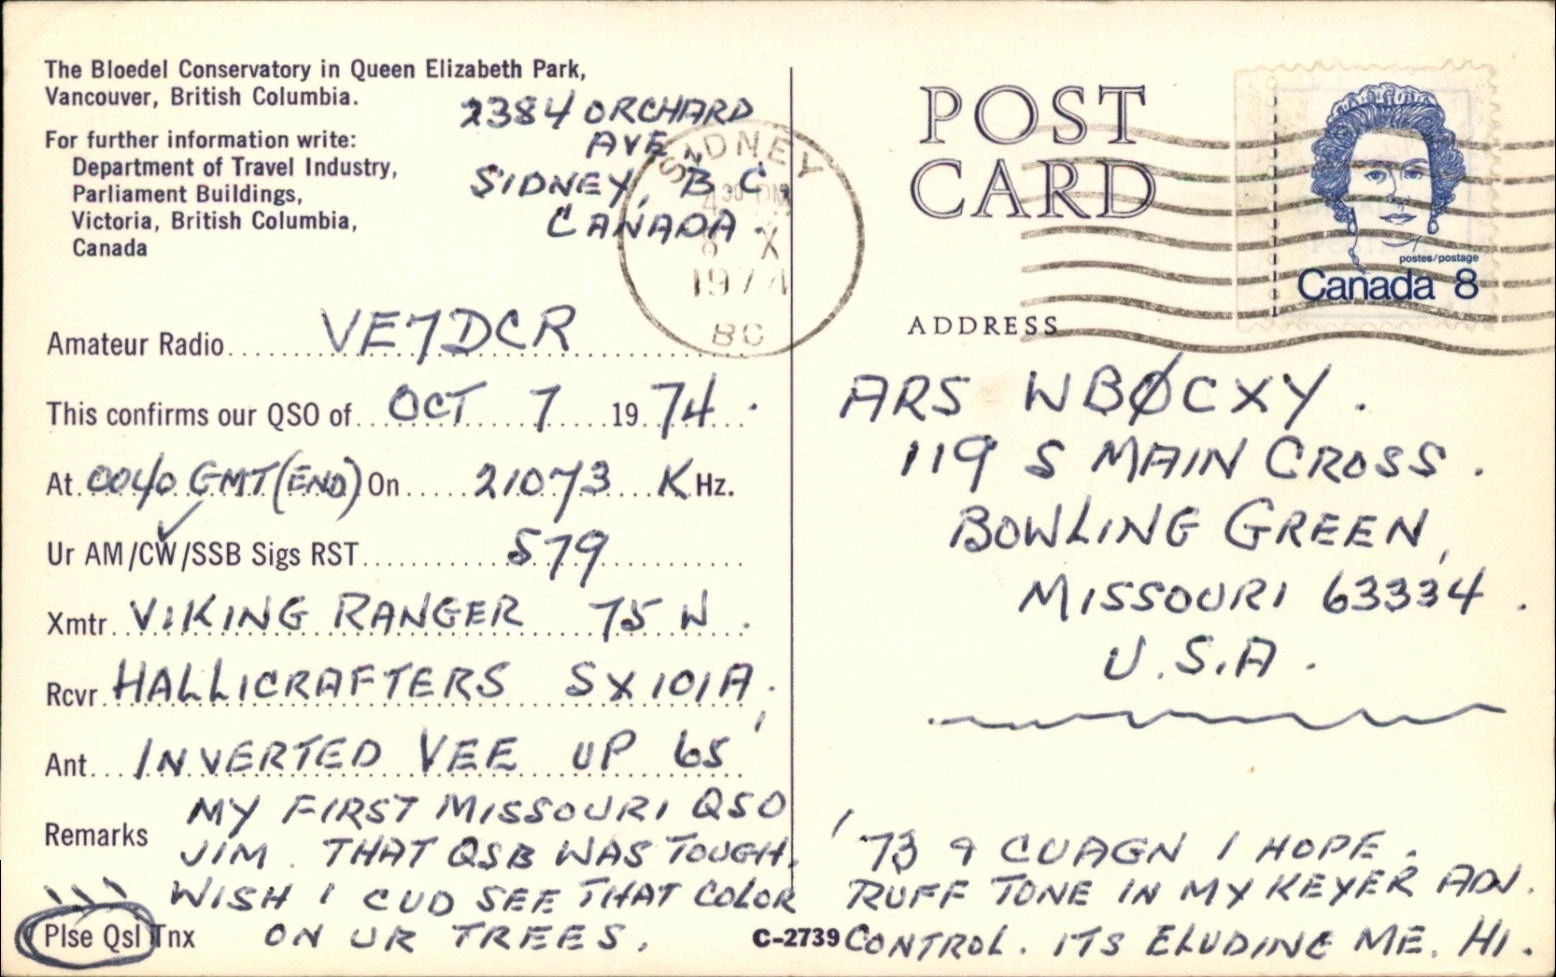 The Bloedel Conservatory in Queen Elizabeth Park,
Vancouver, British Columbia.
For further information write:
Department of Travel Industry,
Parliament Buildings,
Victoria, British Columbia,
Canada
2384 ORCHARD
AVE,
SIDNEY, B C,
CANADA.
SIDNEY
4 30 PM
8 X
1974
BC
POST
CARD
postes/postage
Canada 8
ADDRESS
Amateur Radio VE7DCR
This confirms our QSO of OCT 7 1974.
At 0040 GMT (END) On 21073 KHz.
Ur AM/CW/SSB Sigs RST 579
Xmtr VIKING RANGER 75 W.
Rcvr HALLICRAFTERS SX101A.
Ant INVERTED VEE UP 65'
Remarks MY FIRST MISSOURI QSO
JIM. THAT QSB WAS TOUGH.
WISH I CUD SEE THAT COLOR
Plse Qsl Tnx ON UR TREES.
C-2739
ARS WBØCXY.
119 S MAIN CROSS.
BOWLING GREEN,
MISSOURI 63334.
U.S.A.
73 & CUAGN I HOPE.
RUFF TONE IN MY KEYER ADJ.
CONTROL. ITS ELUDING ME. HI.